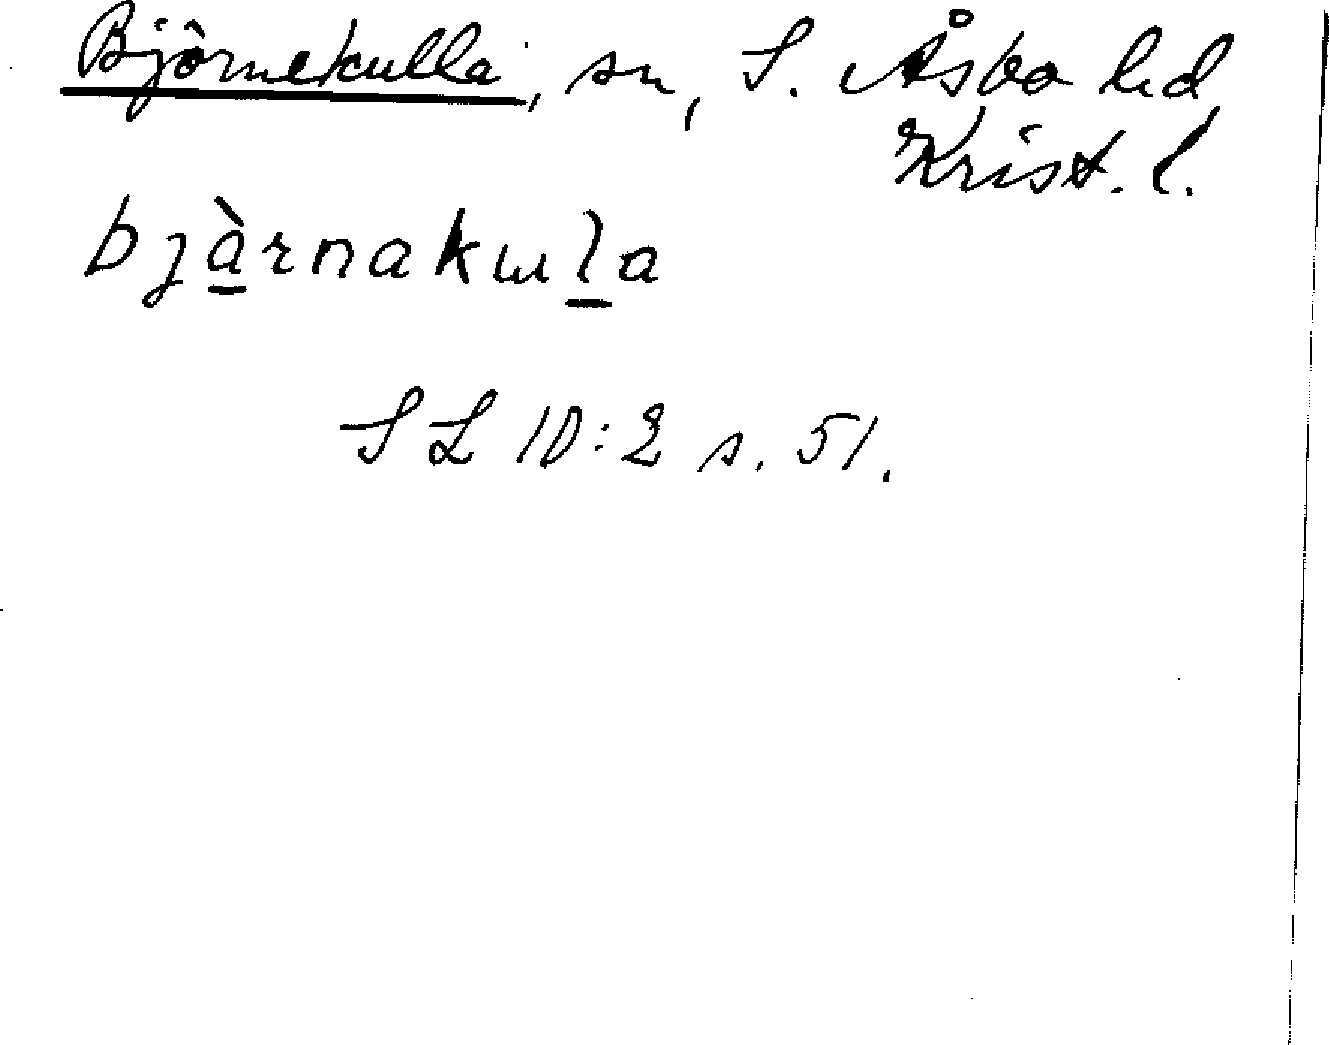 Björnekulla, sn, S. Åsbo hd
Krist. l.
bjàrnakɯla
SL 10:2 s. 51.